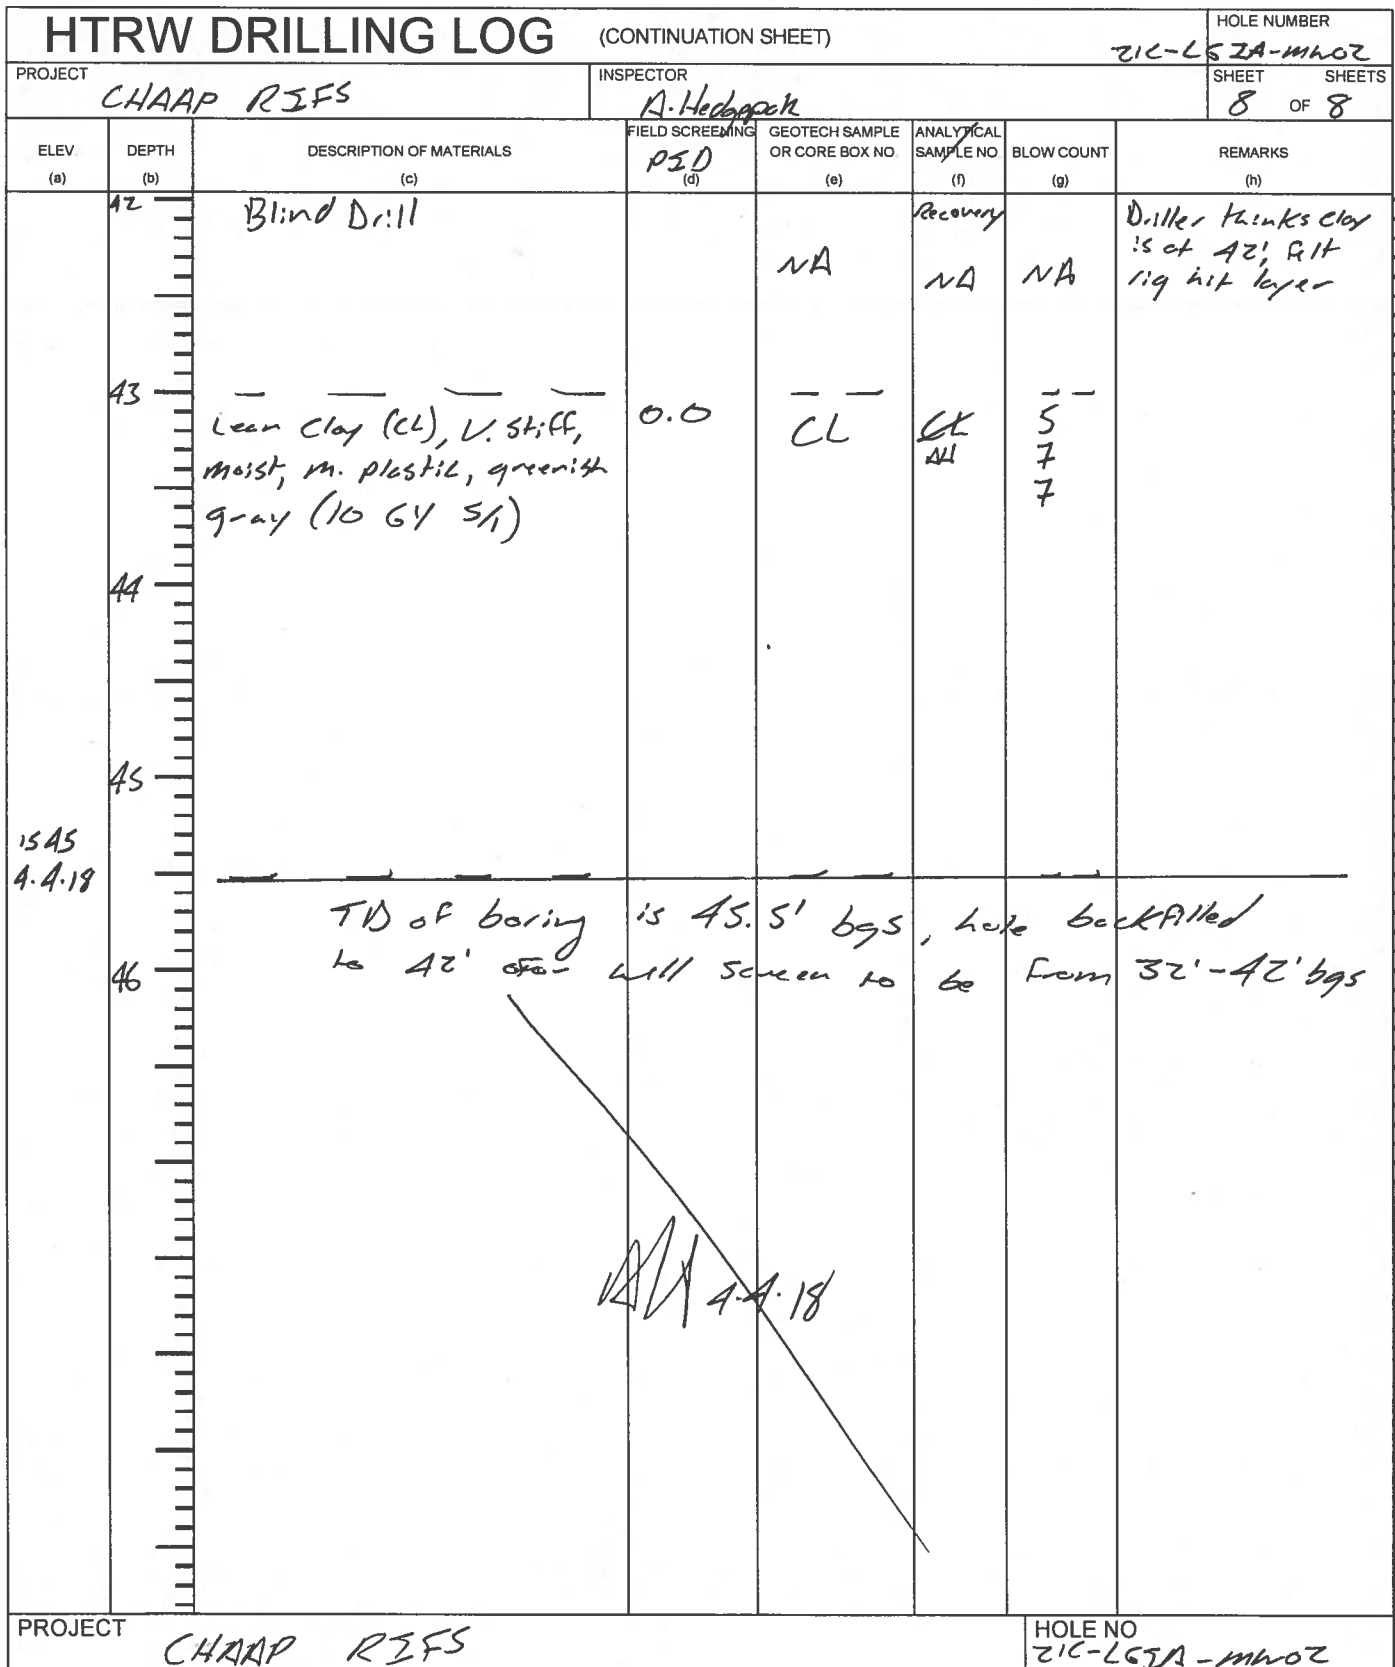 HTRW DRILLING LOG (CONTINUATION SHEET)
HOLE NUMBER
21C-LSIA-MW02
PROJECT
CHAAP RIFS
INSPECTOR
A. Hedgepath
SHEET SHEETS
8 OF 8
ELEV. (a)
DEPTH (b)
DESCRIPTION OF MATERIALS (c)
FIELD SCREENING PID (d)
GEOTECH SAMPLE OR CORE BOX NO. (e)
ANALYTICAL SAMPLE NO. (f)
BLOW COUNT (g)
REMARKS (h)
42 Blind Drill
Recovery
Driller thinks clay
is at 42', felt
rig hit layer
NA NA NA
43
Lean Clay (CL), V. Stiff, 0.0 CL CL 5
moist, m. plastic, greenish 7
gray (10 GY 5/1) 7
44
45
1545
4.4.18
TD of boring is 45.5' bgs, hole backfilled
46 to 42' well screen to be from 32'-42' bgs
4.4.18
PROJECT
CHAAP RIFS
HOLE NO
21C-LSIA-MW02